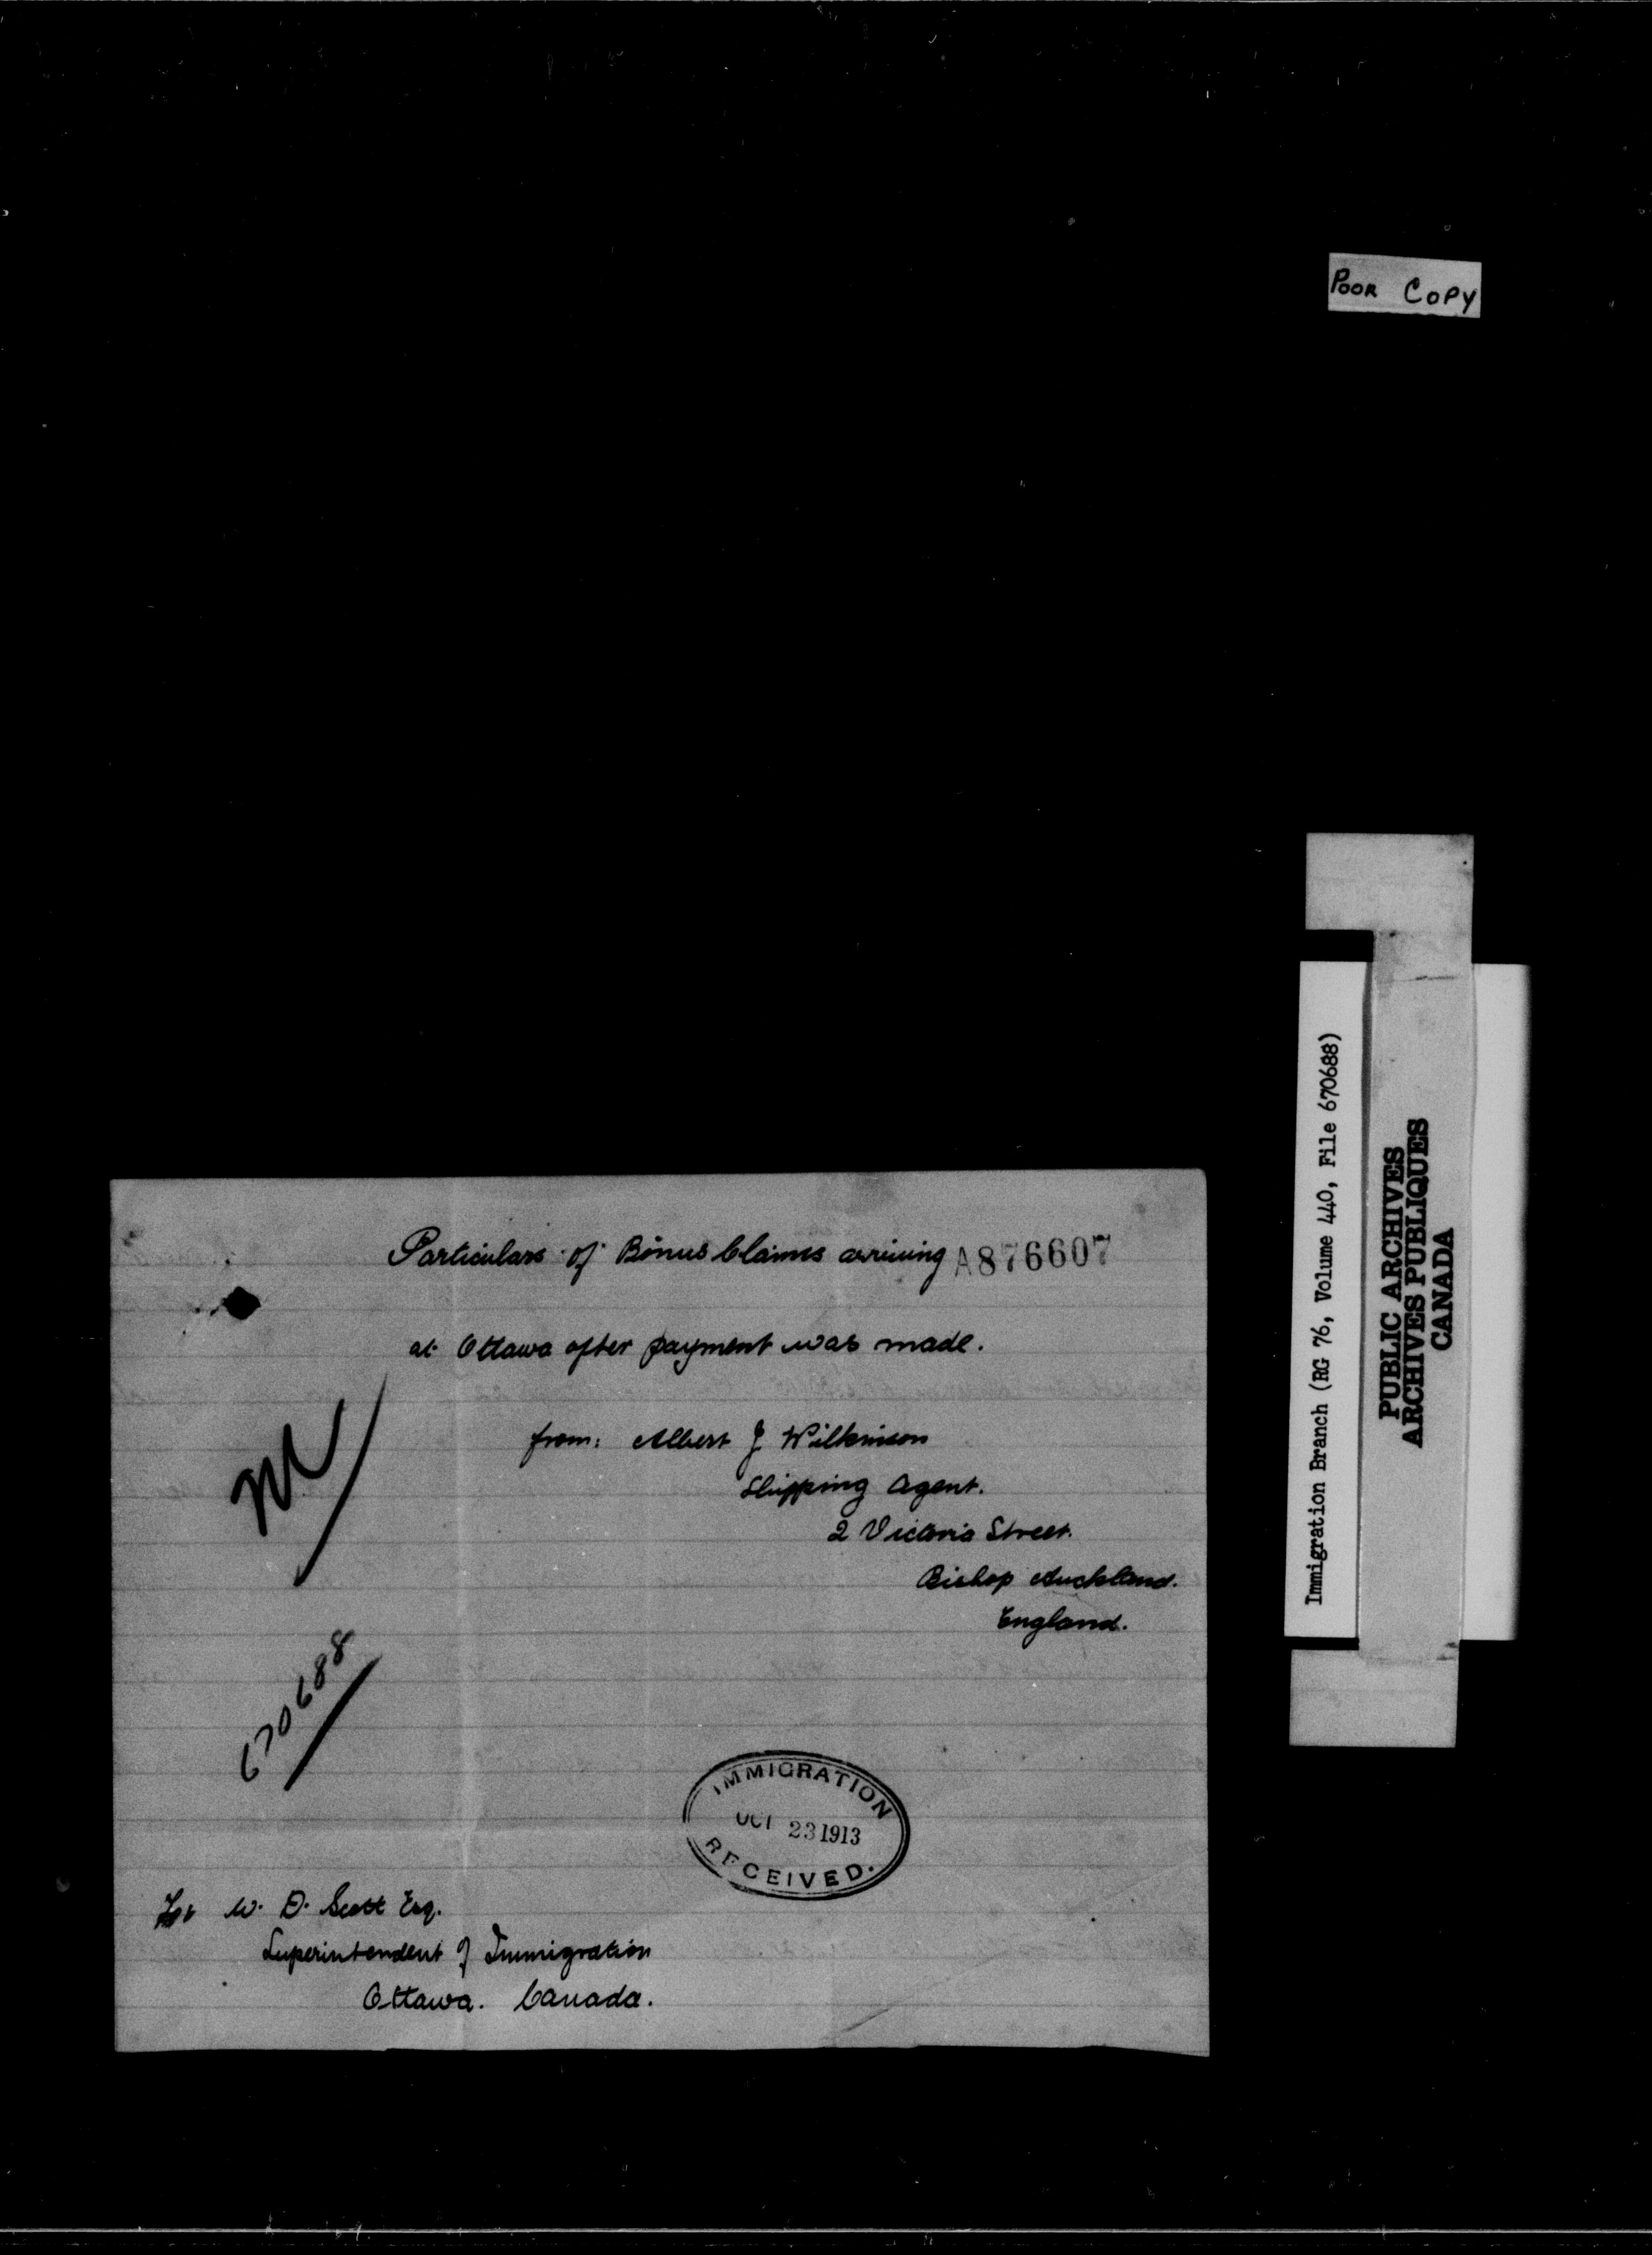 POOR COPY
Particulars of Bonus Claims arriving A876607
at Ottawa after payment was made.
from: Albert J. Wilkinson
Shipping Agent.
2 Victoria Street.
Bishop Auckland.
England.
670688
IMMIGRATION
OCT 23 1913
RECEIVED.
W. D. Scott Esq.
Superintendent of Immigration
Ottawa. Canada.
Immigration Branch (RG 76, Volume 440, File 670688)
PUBLIC ARCHIVES
ARCHIVES PUBLIQUES
CANADA